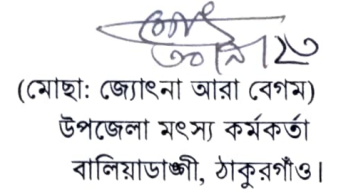 (মোছা: জ্যোৎনা আরা বেগম)
উপজেলা মৎস্য কর্মকর্তা
বালিয়াডাঙ্গী, ঠাকুরগাঁও।